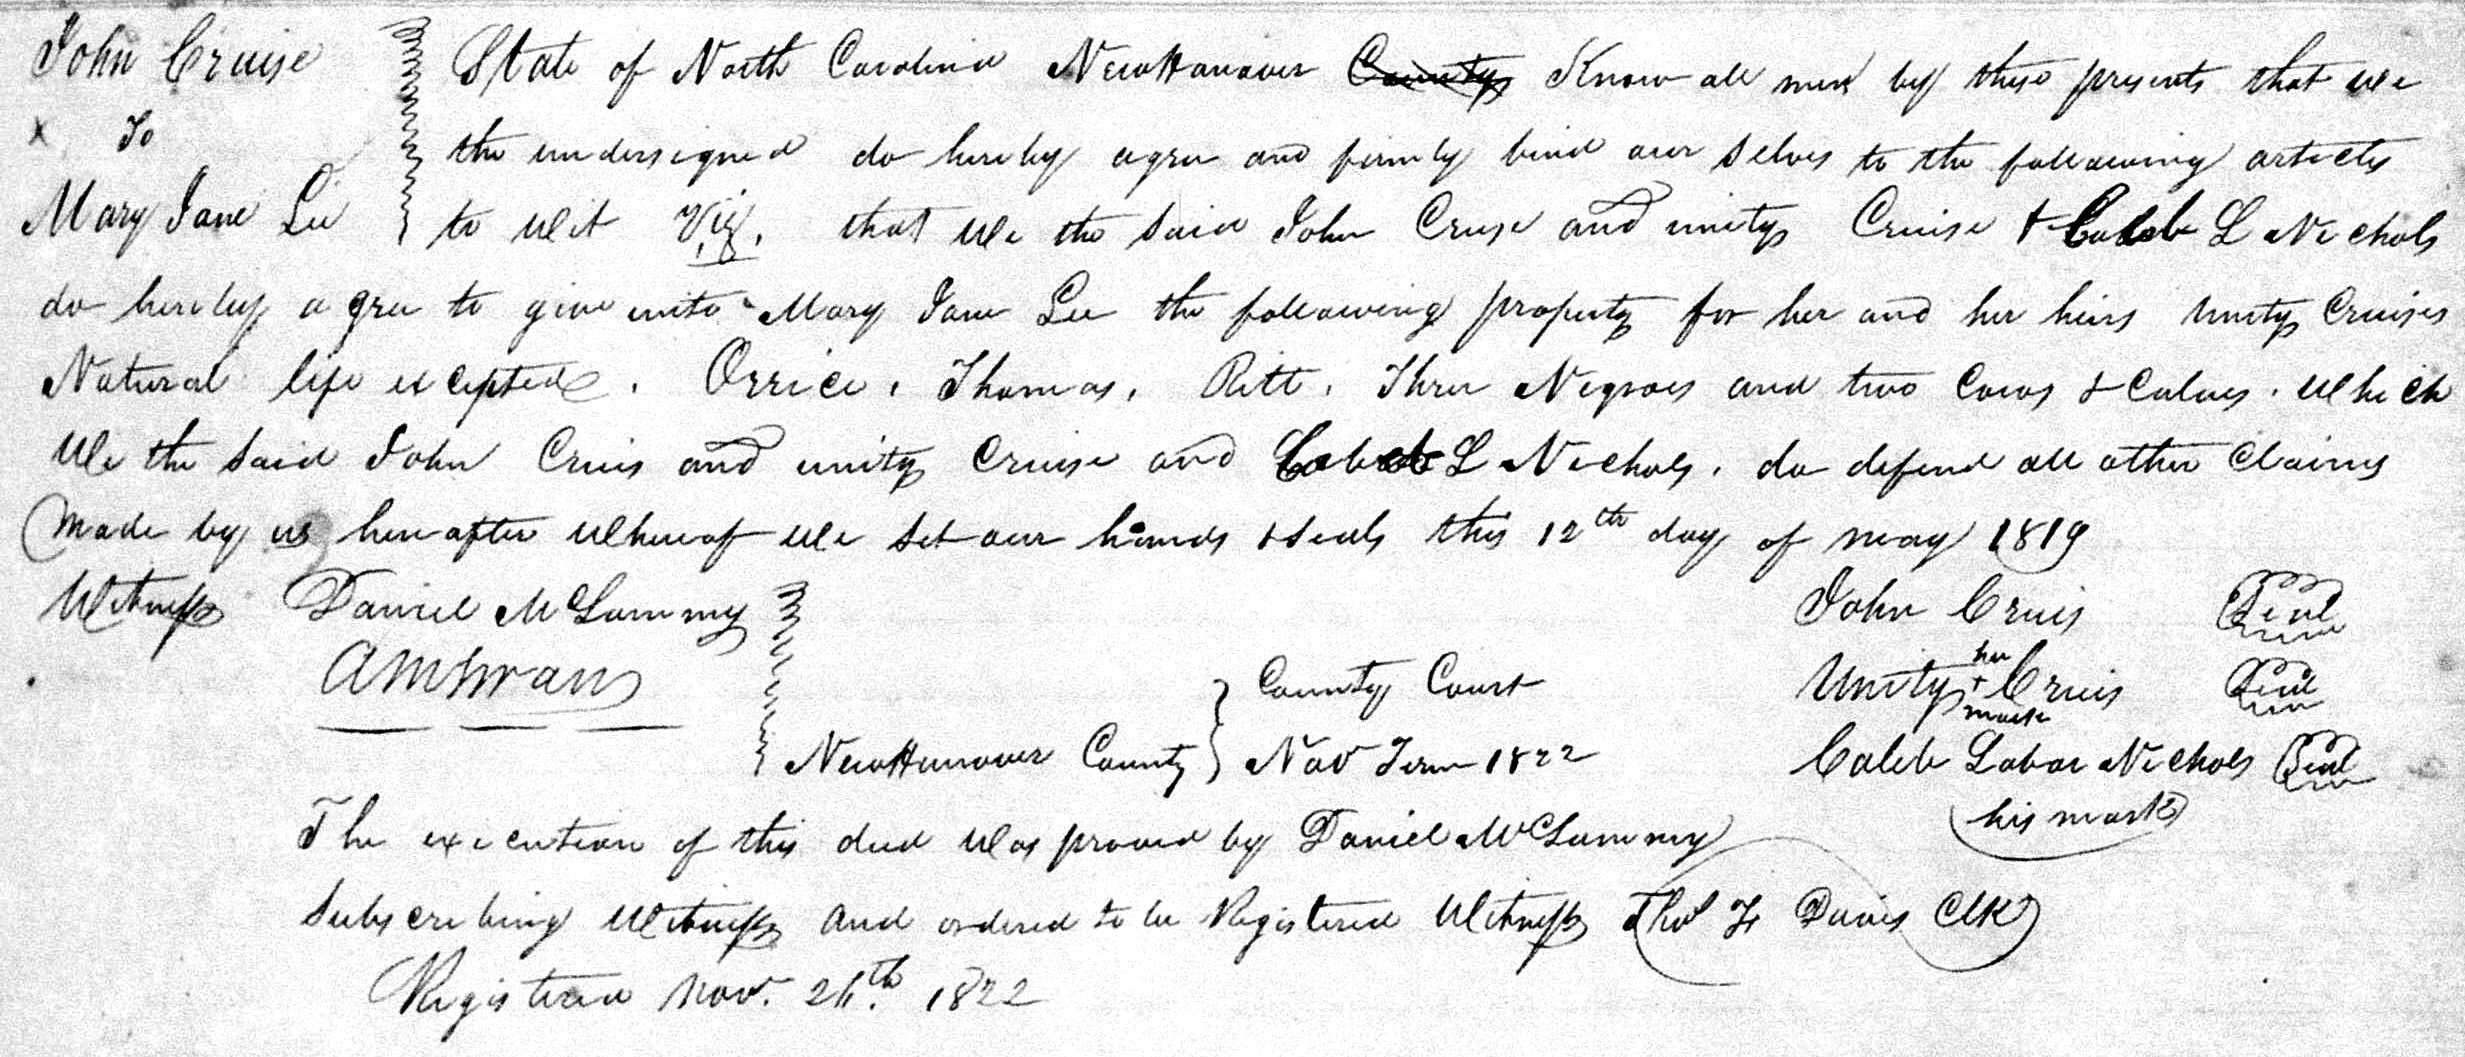 John Cruise
x To
Mary Jane Lee
State of North Carolina NewHanover County Know all men by these presents that we
the undersigned do hereby agree and firmly bind our selves to the following articles
to wit Viz. that we the said John Cruse and unity Cruise & Caleb L Nichols
do hereby agree to give unto Mary Jane Lee the following property for her and her heirs Unity Cruises
Natural life excepted. Orrice, Thomas, Ritt, Three Negroes and two Cows & Calves. which
We the said John Cruis and unity Cruise and Caleb L Nichols. do defend all other Claims
Made by us hereafter whereof we set our hands & seals this 12th day of may 1819
Witness Daniel McLammy John Cruis Seal
Unity her + mark Cruis Seal
County Court
NewHanover County Nov Term 1822 Caleb Labar Nichols Seal
his mark
The execution of this deed was proved by Daniel McLammy
Subscribing Witness and ordered to be Registered Witness Thos F Davis Clk
Registered Nov. 26th. 1822